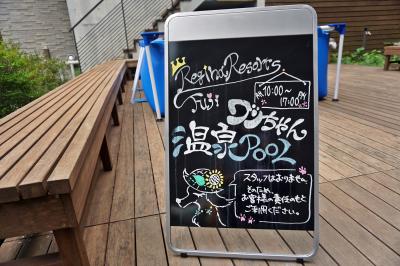 Regina Resorts
Fuji
AM 10:00～
PM 17:00
ワンちゃん
温泉POOL
スタッフはおりません。
そのため、
お客様の責任のもと
ご利用ください。